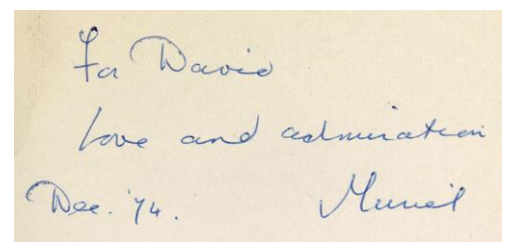 For David
love and admiration
Dec. '74. Muriel